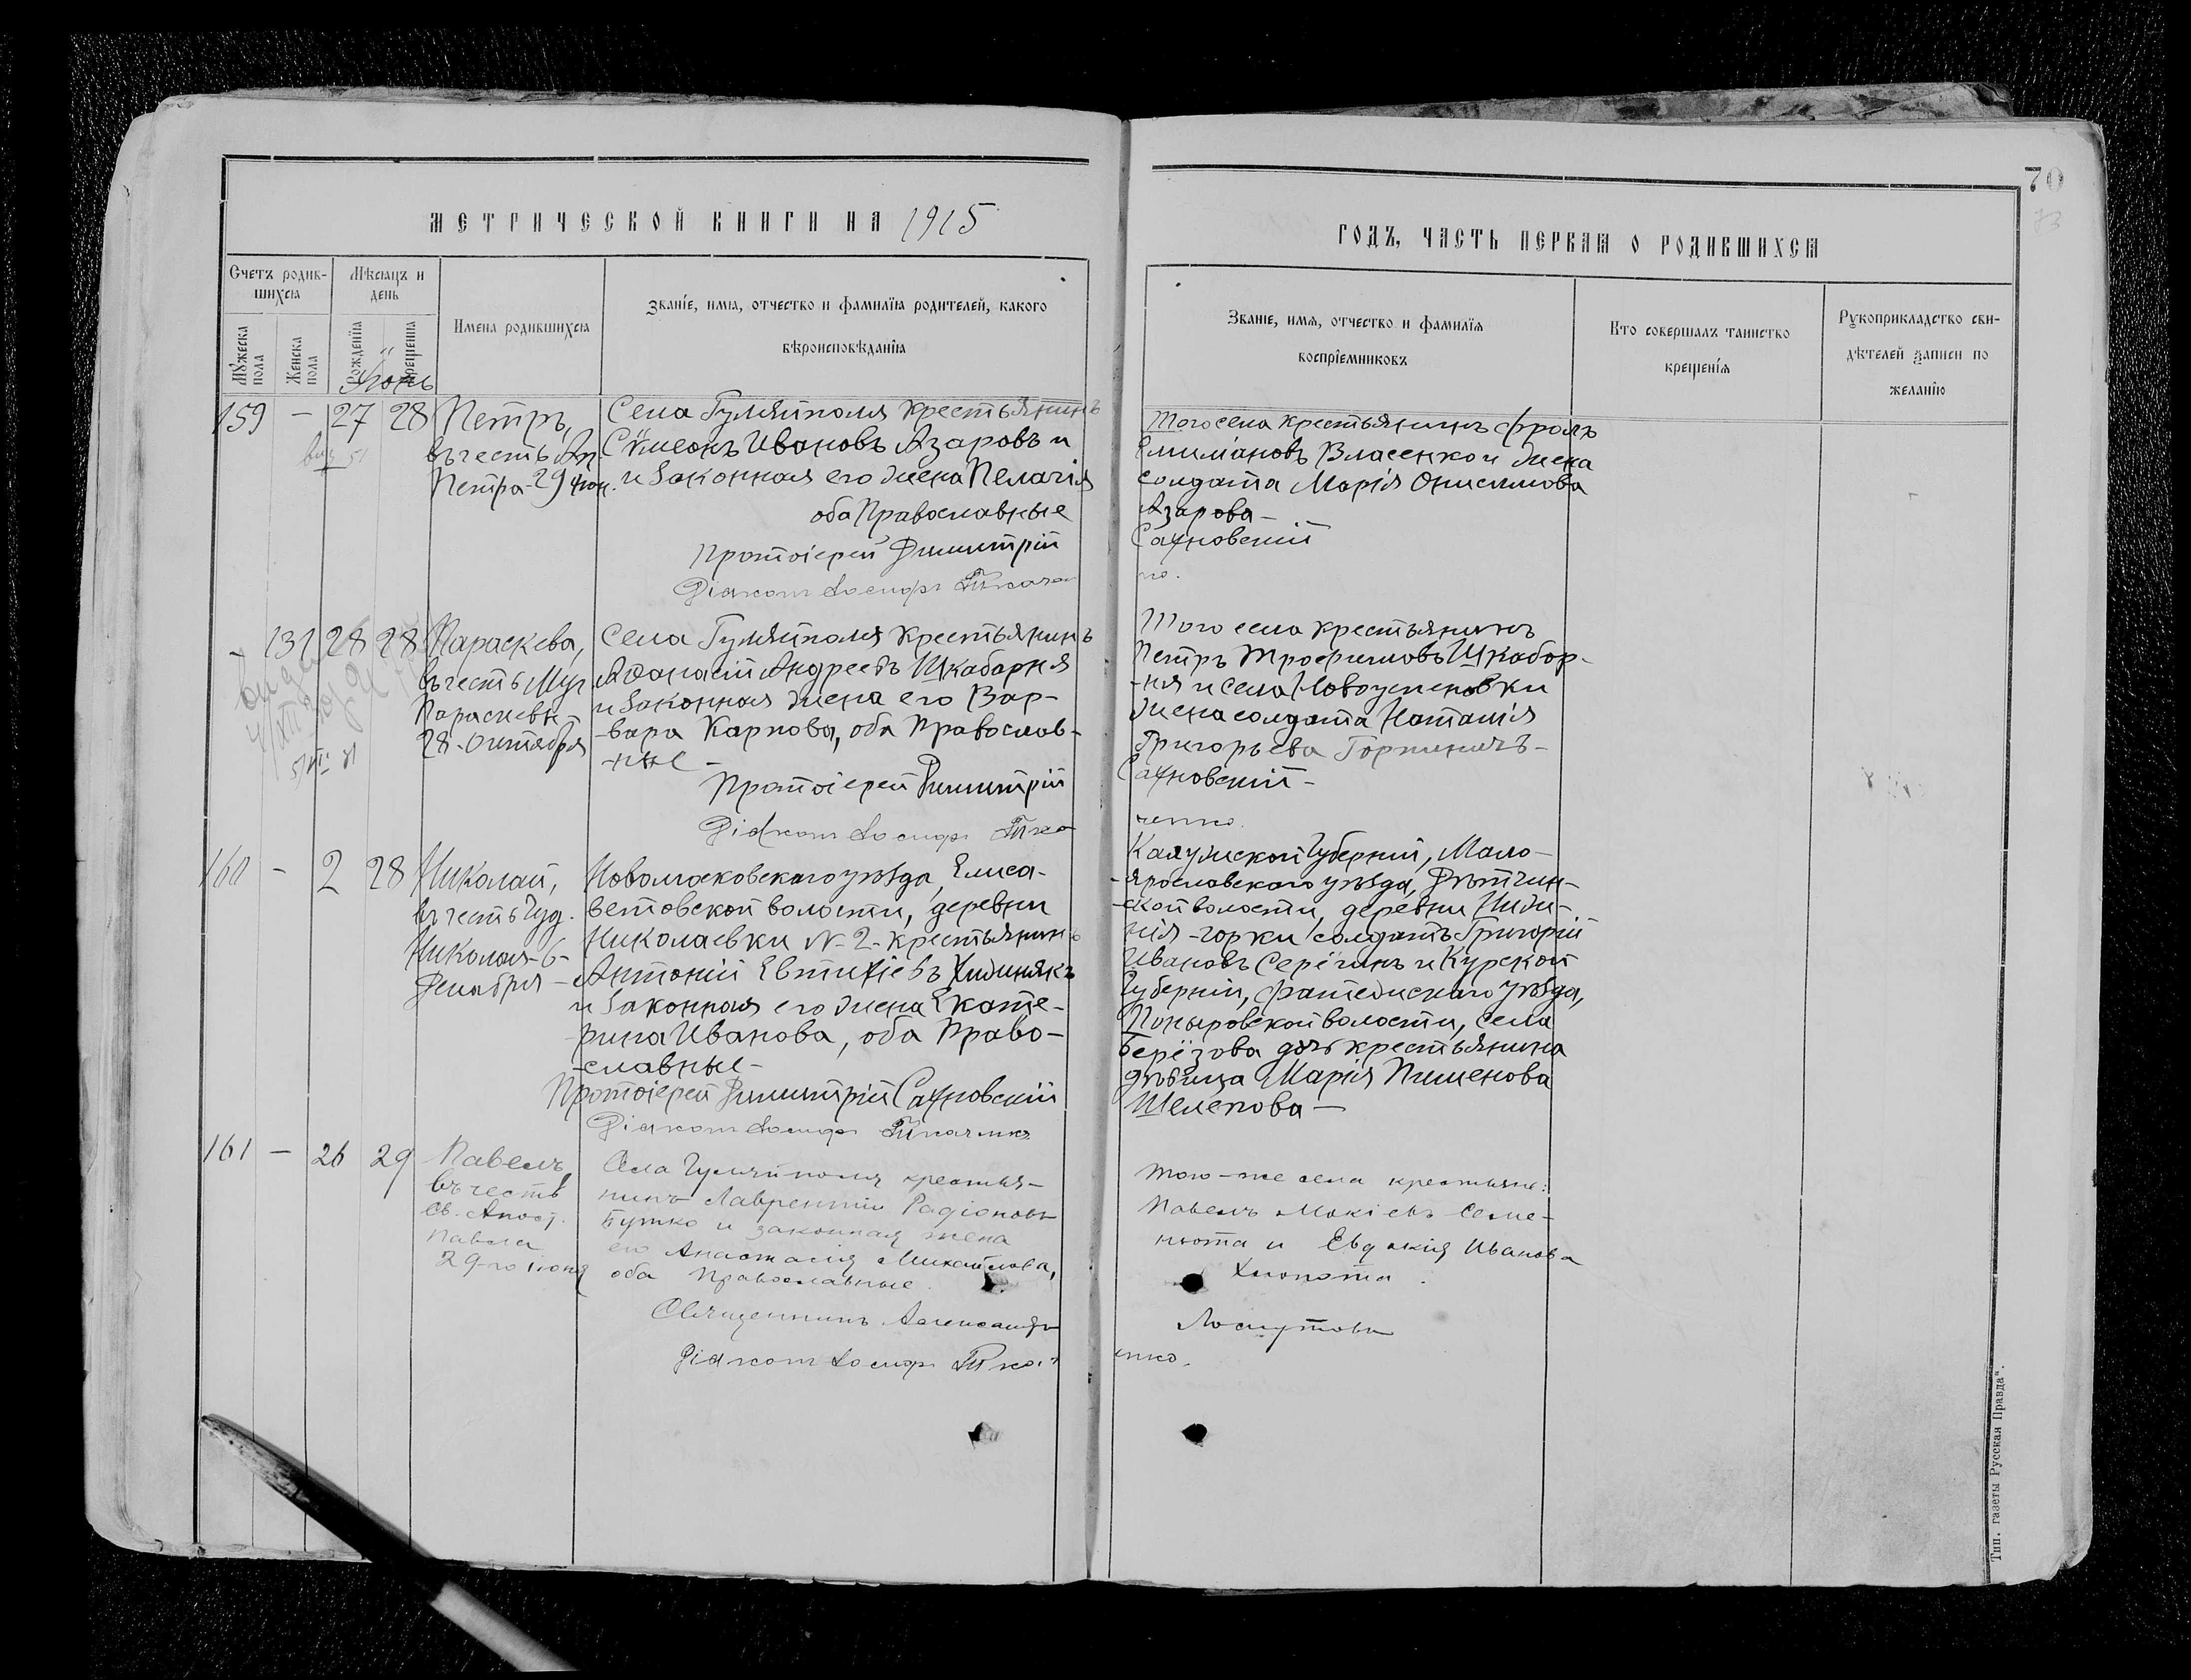 МЕТРИЧЕСКОЙ КНИГИ НА 1915
ГОДЪ, ЧАСТЬ ПЕРВАЯ О РОДИВШИХСЯ
70
73
Счетъ родив-
шихся
Мужеска
пола
Женска
пола
Мѣсяцъ и
день
Рожденія
Крещенія
Имена родившихся
Званіе, имя, отчество и фамилія родителей, какого
вѣроисповѣданія
Званіе, имя, отчество и фамилія
воспріемниковъ
Кто совершалъ таинство
крещенія
Рукоприкладство сви-
дѣтелей записи по
желанію
Іюнь
159 - 27 28
Петръ,
въ честь Ап.
Петра 29 Іюн.
Села Гуляйполя крестьянинъ
Сѵмеонъ Ивановъ Азаровъ и
и законная его жена Пелагія
оба Православные
Протоіерей Димитрій
Діаконъ Іосифъ Ткаче
Того села крестьянинъ Фролъ
Власенко и жена
солдата Марія Онисимова
Азарова -
Сахновскій
но.
- 131 28 28
Параскева,
въ честь Муч
Параскевы
28 - Октября
Села Гуляйполя крестьянинъ
Аѳанасій Андреевъ Шкабарня
и законная жена его Вар-
-вара Карпова, оба православ-
-ные -
Протоіерей Димитрій
Діаконъ Іосифъ Тка
Того села крестьянинъ
Петръ Трофимовъ Шкабар-
-ня и села Новоуспеновки
жена солдата Наталія
Григорьева
Сахновскій -
ченко.
160 - 2 28
Николай,
въ честь Чуд.
Николая - 6 -
Декабря -
Новомосковскаго уѣзда, Елиса-
ветовской волости, деревни
Николаевки № 2 - крестьянинъ
Антоній Евтихіевъ
и законная его жена Екате-
рина Иванова, оба Право-
-славные -
Протоіерей Димитрій Сахновскій
Діаконъ Іосифъ Ткаченко
Калужской Губерніи, Мало-
-ярославскаго уѣзда, Дѣтчин-
-ской волости, деревни Ниж-
нія - горки солдатъ Григорій
Ивановъ Серёгинъ и Курской
Губерніи, Фатежскаго уѣзда,
Поныровской волости, села
Берёзова дочь крестьянина
дѣвица Марія Пименова
Шелепова -
161 - 26 29
Павелъ
въ честь
св. Апост.
Павла
29-го іюня
Села Гуляйполя крестья-
нинъ Лаврентій Радіоновъ
Бутко и законная жена
его Анастасія Михайлова,
оба православные.
Священникъ Александръ
Діаконъ Іосифъ Ткач
Того-же села крестьяне:
Павелъ Мокіевъ Семе-
нюта и Евдокія Иванова
Хлопота.
Лоскутовъ
енко.
Тип. газеты "Русская Правда".